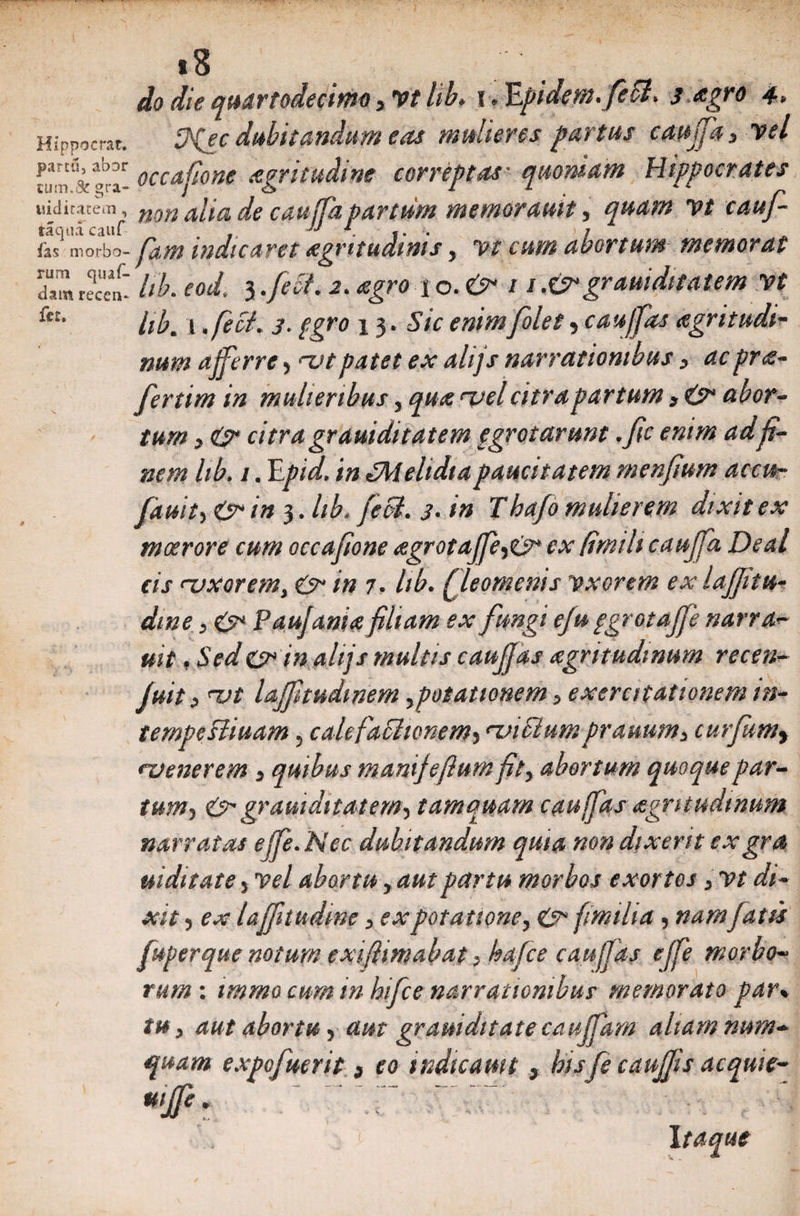 18
do die quartodecimo, vt lib. 1. Epidem. sect. 3 ægro 4.
Nec dubitandum eas mulieres partus caussa, vel
occasione ægritudine correptas quoniam Hippocrates
non alia de caussa partum memorauit, quam vt caus-
sam indicaret ægritudinis, vt cum abortum memorat
lib. eod. 3. sect. 2. ægro 10. & 11. & grauiditatem vt
lib. 1. sect. 3. ęgro 13. Sic enim solet, caussas ægritudi-
num afferre, vt patet ex alijs narrationibus, ac præ-
sertim in mulieribus, quæ vel citra partum, & abor-
tum, & citra grauiditatem ęgrotarunt. sic enim ad fi-
nem lib. 1. Epid. in Melidia paucitatem mensium accu-
sauit, & in 3. lib. sect. 3. in Thaso mulierem dixit ex
mœrore cum occasione ægrotasse, & ex simili caussa Deal
cis vxorem, & in 7. lib. Cleomenis vxorem ex lassitu-
dine, & Pausaniæ filiam ex fungi esu ęgrotasse narra-
uit. Sed & in alijs multis caussas ægritudinum recen-
suit, vt lassitudinem, potationem, exercitationem in-
tempestiuam, calefactionem, victum prauum, cursum,
venerem, quibus manifestum fit, abortum quoque par-
tum, & grauiditatem, tamquam caussas ægritudinum
narratas esse. Nec dubitandum quia non dixerit ex gra
uiditate, vel abortu, aut partu morbos exortos, vt di-
xit, ex lassitudine, ex potatione, & similia, nam satis
superque notum existimabat, hasce caussas esse morbo-
rum: immo cum in hisce narrationibus memorato par-
tu, aut abortu, aut grauiditate caussam aliam num-
quam exposuerit, eo indicauit, his se caussis acquie-
uisse.
Itaque
Hippocrat.
partũ, abor
tum, & gra-
uiditatem,
tãquã cauſ
sas morbo-
rum quas-
dam recen-
set.